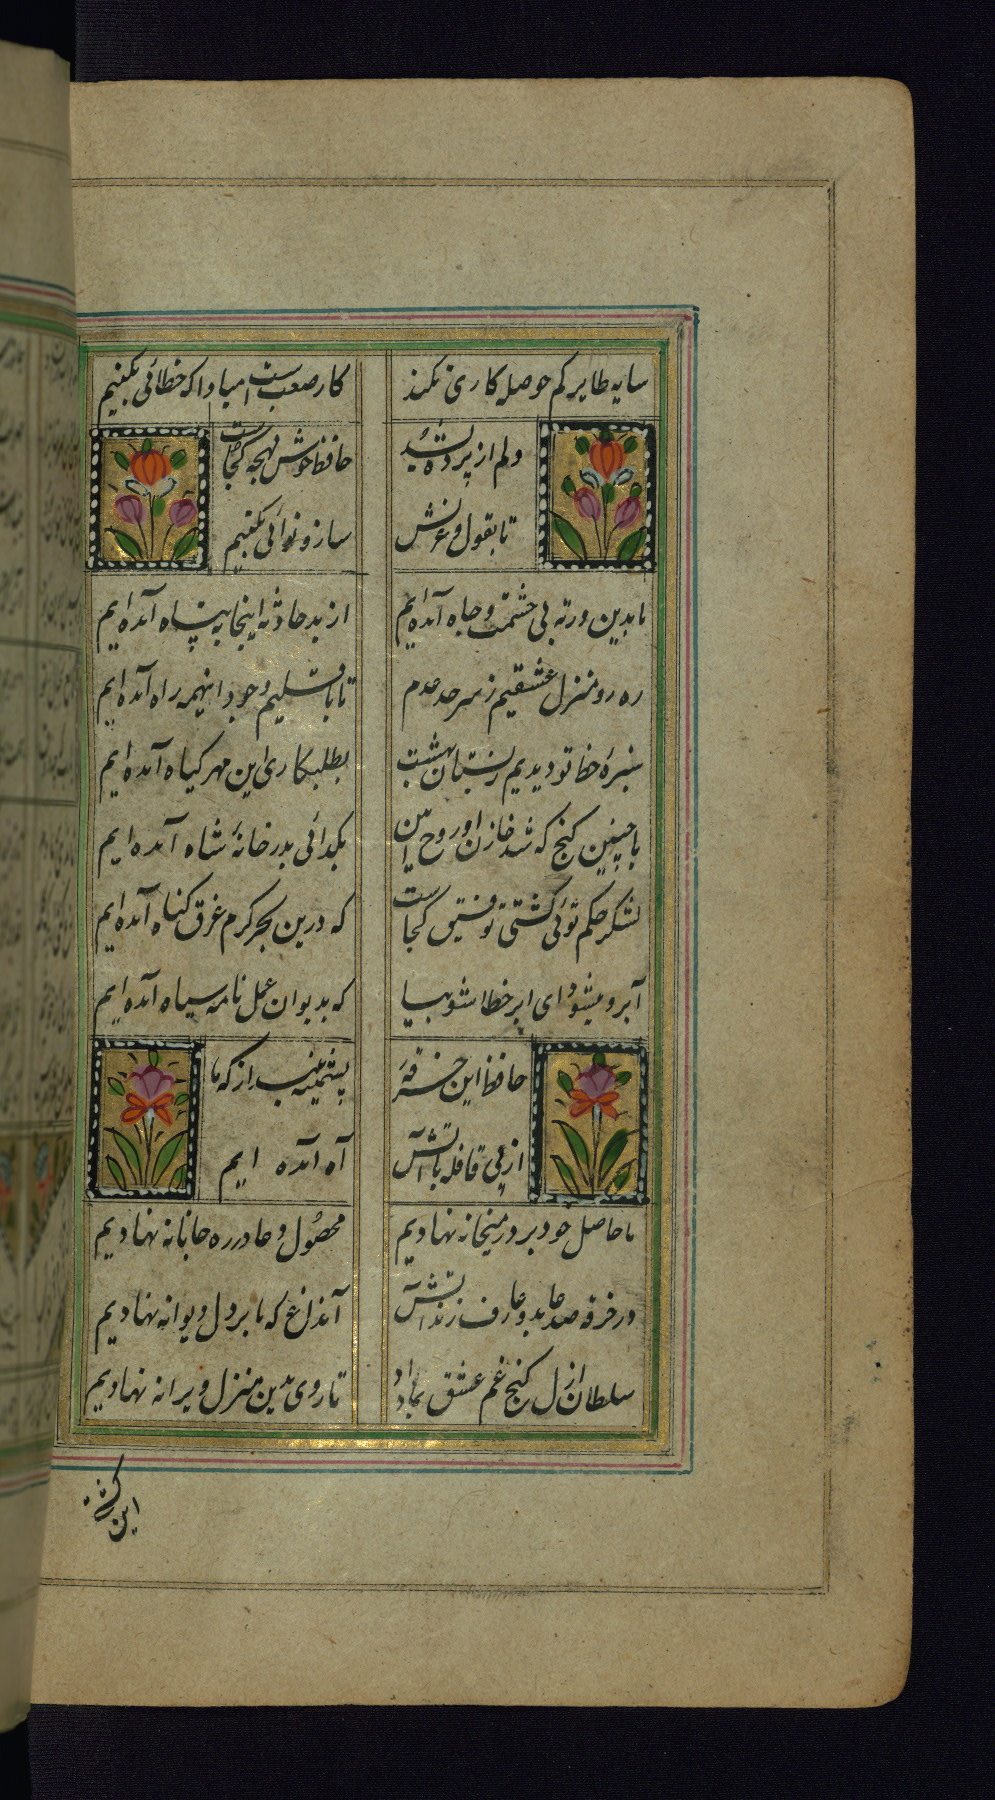 سایه طایر کم حوصله کاری نکند
کار صعب است مبادا که خطائی بکنیم
دلم از پرده بشد
حافظ خوش لهجه کجاست
تا بقول و غزلش
ساز و نوائی بکنیم
ما بدین در نه پی حشمت و جاه آمده‌ایم
از بد حادثه اینجا به پناه آمده‌ایم
ره رو منزل عشقیم ز سر حد عدم
تا باقلیم وجود اینهمه راه آمده‌ایم
سبزهٔ خط تو دیدیم ز بستان بهشت
بطلبکاری این مهر کیاه آمده‌ایم
با چنین کنج که شد خازن او روح امین
بکدائی بدر خانهٔ شاه آمده‌ایم
لنکر حکم تو ای کشتی توفیق کجاست
که درین بحر کرم غرق کناه آمده‌ایم
آبرو میشود ای ابر خطا شو ببار
که بدیوان عمل نامه سیاه آمده‌ایم
حافظ این خرقهٔ
پشمینه بینداز که ما
از پی قافله با آتش
آه آمده ایم
ما حاصل خود بر در میخانه نهادیم
محصول دعا در ره جانانه نهادیم
در خرقه صد عابد و عارف زند آتش
آنداغ که ما بر دل دیوانه نهادیم
سلطان ازل کنج غم عشق بما داد
تا روی بدین منزل ویرانه نهادیم
این کشته